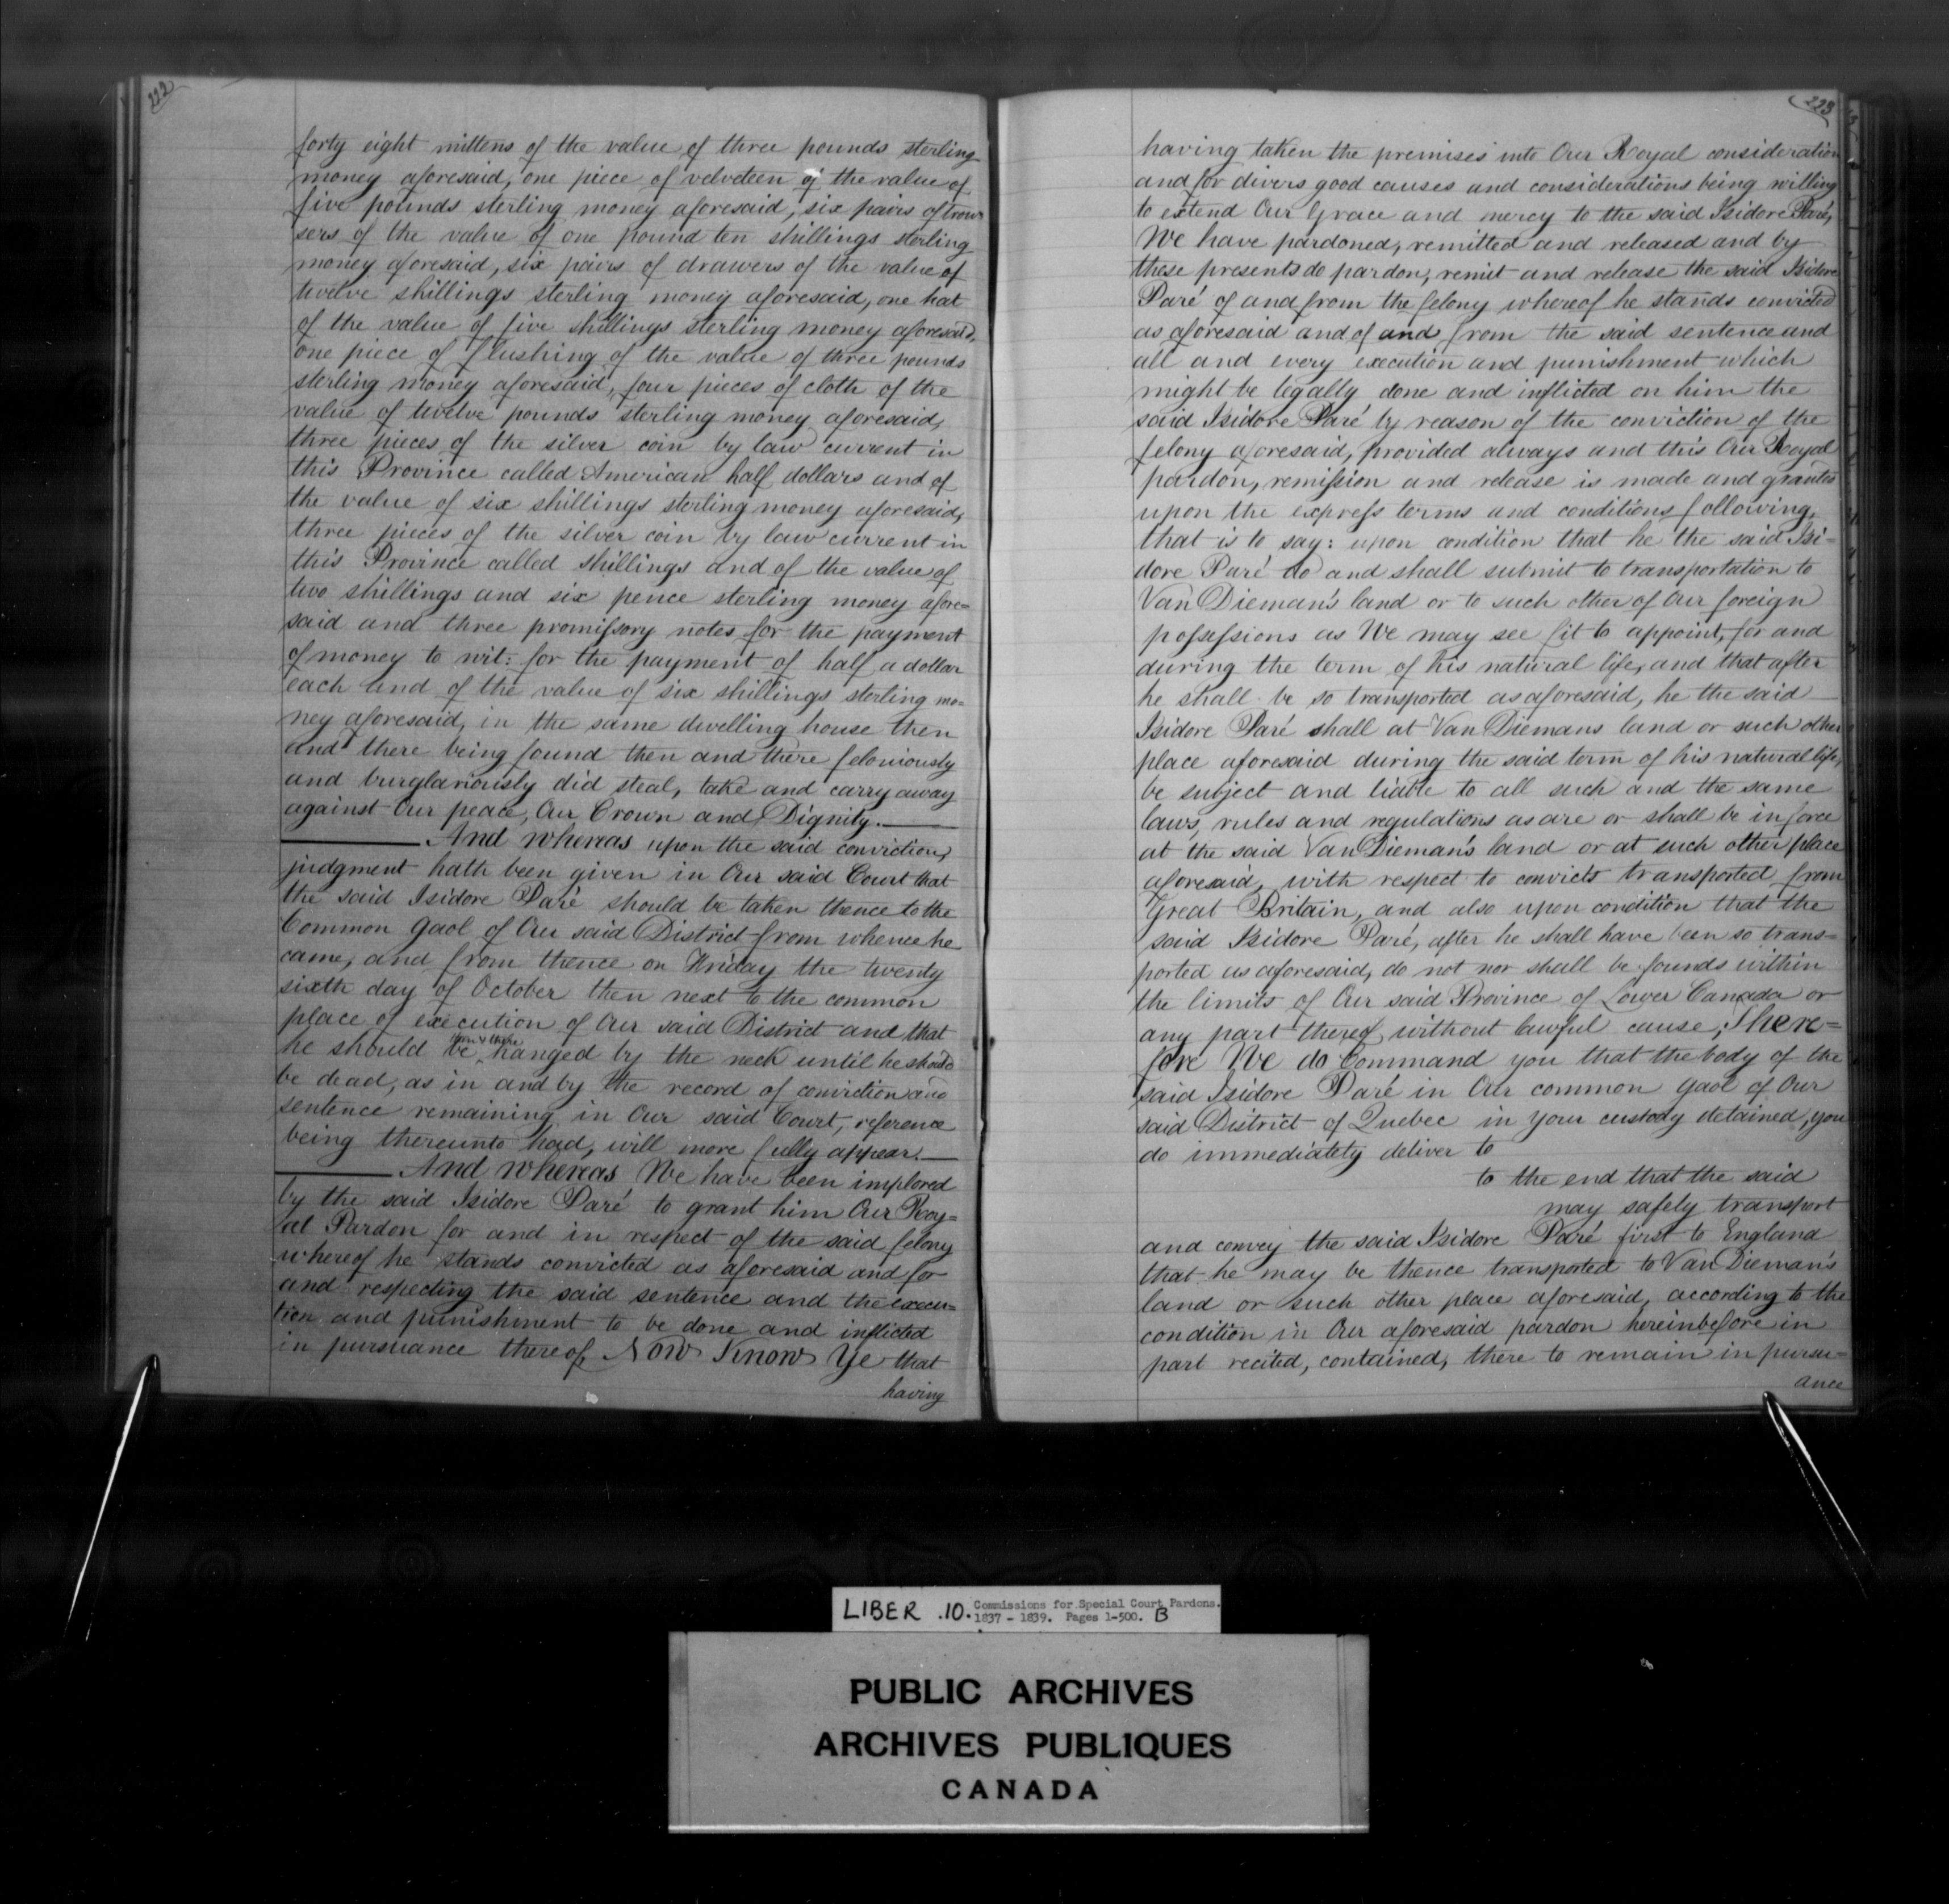 222
forty eight mittens of the value of three pounds sterling
money aforesaid, one piece of velveteen of the value of
five pounds sterling money aforesaid, six pairs of trow
sers of the value of one pound ten shillings sterling
money aforesaid, six pairs of drawers of the value of
twelve shillings sterling money aforesaid, one hat
of the value of five shillings sterling money aforesaid,
one piece of flushing of the value of three pounds
sterling money aforesaid, four pieces of cloth of the
value of twelve pounds sterling money aforesaid,
three pieces of the silver coin by law current in
this Province called American half dollars and of
the value of six shillings sterling money aforesaid,
three pieces of the silver coin by law current in
this Province called shillings and of the value of
two shillings and six pence sterling money afore=
said and three promissory notes for the payment
of money to wit: for the payment of half a dollar
each and of the value of six shillings sterling mo=
ney aforesaid, in the same dwelling house then
and there being found then and there feloniously
and burglariously did steal, take and carry away
against Our peace, Our Crown and Dignity.
And whereas upon the said conviction,
judgment hath been given in Our said Court that
the said Isidore Paré should be taken thence to the
Common Gaol of Our said District from whence he
came, and from thence on Friday the twenty
sixth day of October then next to the common
place of execution of Our said District and that
he should be then & there hanged by the neck until he should
be dead, as in and by the record of conviction and
sentence remaining in Our said Court, reference
being thereunto had, will more fully appear.
And whereas We have been implored
by the said Isidore Paré to grant him Our Roy=
al Pardon for and in respect of the said felony
whereof he stands convicted as aforesaid and for
and respecting the said sentence and the execu=
tion and punishment to be done and inflicted
in pursuance thereof, Now Know Ye that
having
223
having taken the premises into Our Royal consideration
and for divers good causes and considerations being willing
to extend Our Grace and mercy to the said Isidore Paré,
We have pardoned, remitted and released and by
these presents do pardon, remit and release the said Isidore
Paré of and from the felony whereof he stands convicted
as aforesaid and of and from the said sentence and
all and every execution and punishment which
might be legally done and inflicted on him the
said Isidore Paré by reason of the conviction of the
felony aforesaid, provided always and this Our Royal
pardon, remission and release is made and granted
upon the express terms and conditions following,
that is to say: upon condition that he the said Isi=
dore Paré do and shall submit to transportation to
Van Dieman's land or to such other of Our foreign
possessions as We may see fit to appoint, for and
during the term of his natural life, and that after
he shall be so transported as aforesaid, he the said
Isidore Paré shall at Van Diemans land or such other
place aforesaid during the said term of his natural life,
be subject and liable to all such and the same
laws, rules and regulations as are or shall be in force
at the said Van Dieman's land or at such other place
aforesaid, with respect to convicts transported from
Great Britain, and also upon condition that the
said Isidore Paré, after he shall have been so trans=
ported as aforesaid, do not nor shall be founds within
the limits of Our said Province of Lower Canada or
any part thereof, without lawful cause, There=
fore We do Command you that the body of the
said Isidore Paré in Our common gaol of Our
said District of Quebec in your custody detained, you
do immediately deliver to
to the end that the said
may safely transport
and convey the said Isidore Paré first to England
that he may be thence transported to Van Dieman's
land or such other place aforesaid, according to the
condition in Our aforesaid pardon hereinbefore in
part recited, contained, there to remain in pursu=
ance
LIBER .10. Commissions for Special Court Pardons.
1837 - 1839. Pages 1-500. B
PUBLIC ARCHIVES
ARCHIVES PUBLIQUES
CANADA